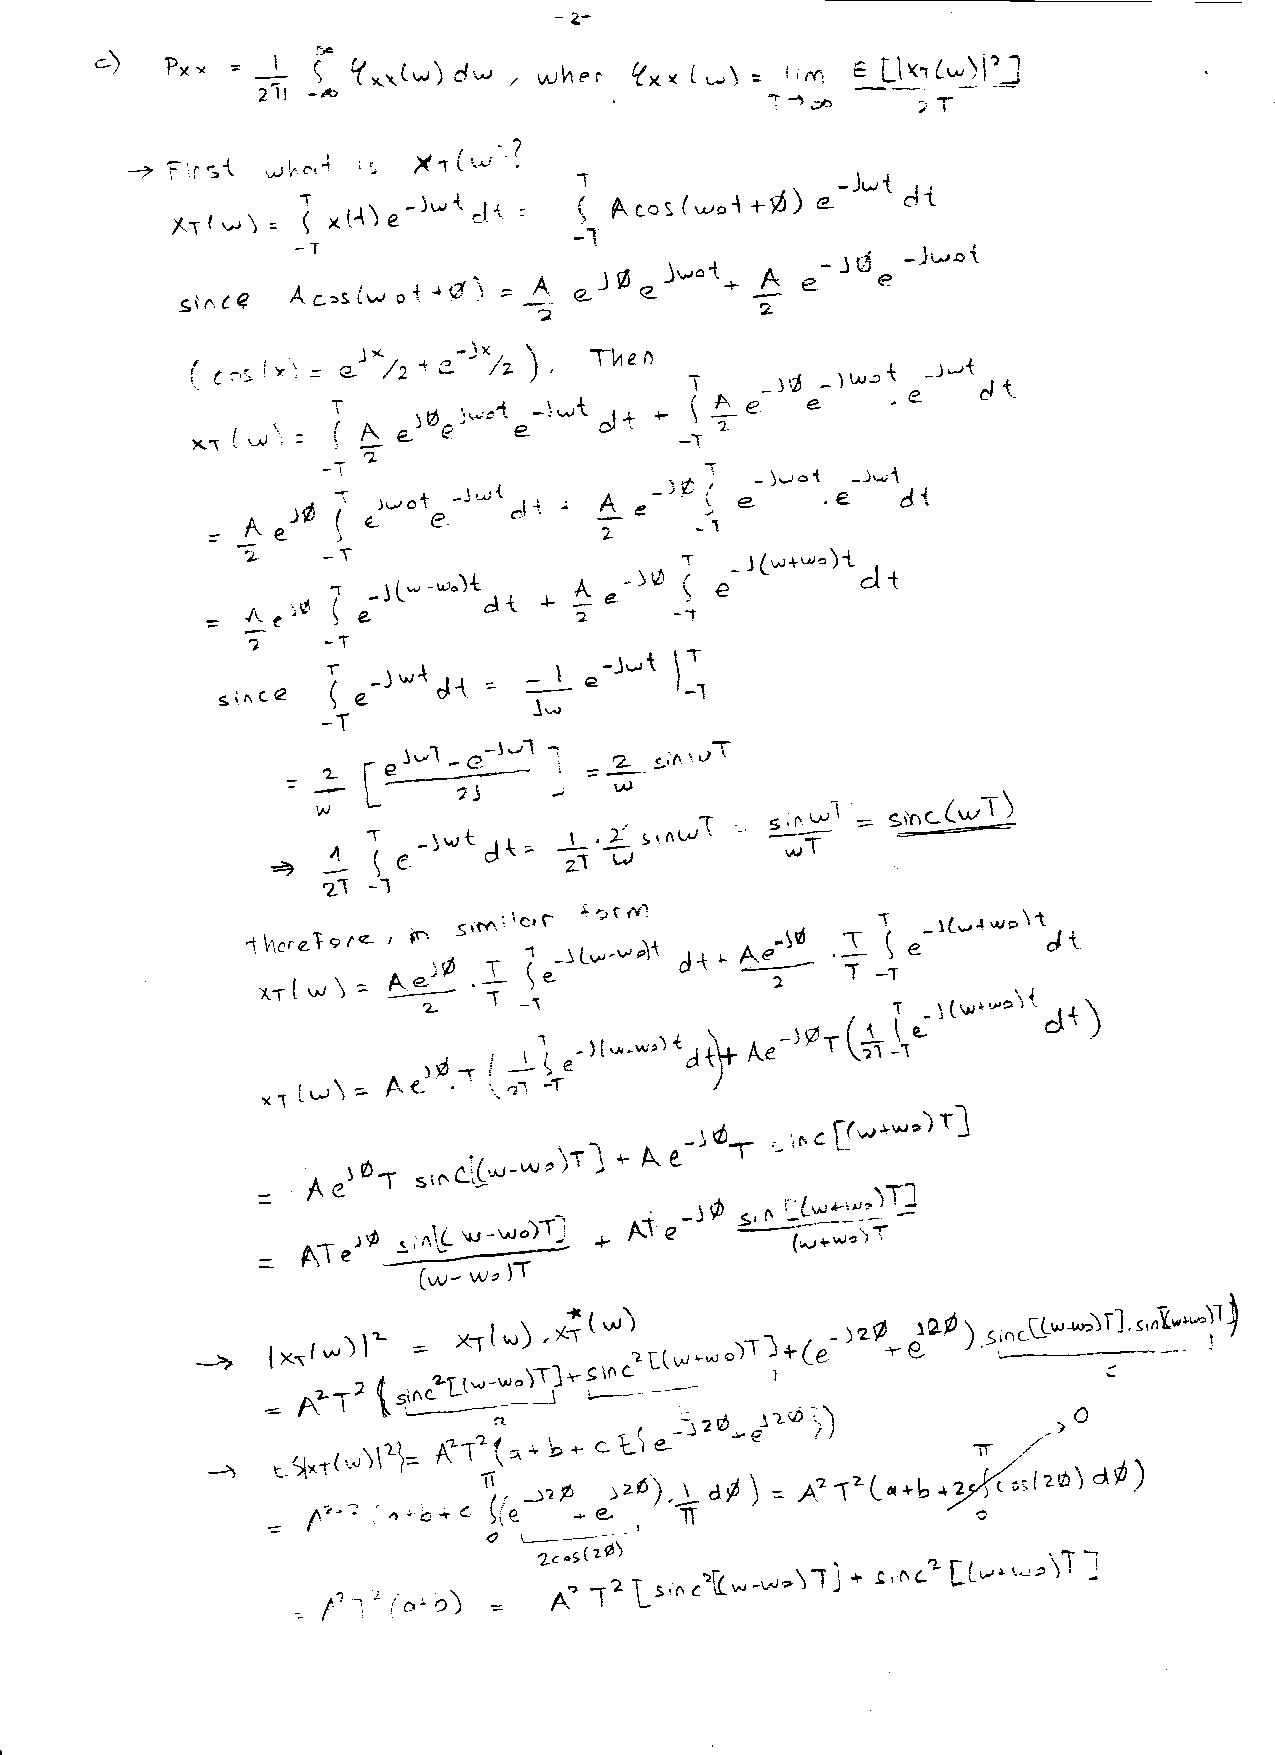 -2-
c) Pxx = 1/2π ∫_{-∞}^{∞} φxx(w) dw , wher φxx(w) = lim_{T→∞} E[|XT(w)|²]/2T
→ First what is XT(w)?
XT(w) = ∫_{-T}^{T} x(t) e^{-Jwt} dt = ∫_{-T}^{T} A cos(w0t+ø) e^{-Jwt} dt
since Acos(w0t+ø) = A/2 e^{Jø} e^{Jw0t} + A/2 e^{-Jø} e^{-Jw0t}
(cos(x) = e^{Jx}/2 + e^{-Jx}/2). Then
XT(w) = ∫_{-T}^{T} A/2 e^{Jø} e^{Jw0t} e^{-Jwt} dt + ∫_{-T}^{T} A/2 e^{-Jø} e^{-Jw0t} . e^{-Jwt} dt
= A/2 e^{Jø} ∫_{-T}^{T} e^{Jw0t} e^{-Jwt} dt + A/2 e^{-Jø} ∫_{-T}^{T} e^{-Jw0t} . e^{-Jwt} dt
= A/2 e^{Jø} ∫_{-T}^{T} e^{-J(w-w0)t} dt + A/2 e^{-Jø} ∫_{-T}^{T} e^{-J(w+w0)t} dt
since ∫_{-T}^{T} e^{-Jwt} dt = -1/Jw e^{-Jwt} |_{-T}^{T}
= 2/w [ (e^{JwT} - e^{-JwT})/2J ] = 2/w sinwT
⇒ 1/2T ∫_{-T}^{T} e^{-Jwt} dt = 1/2T . 2/w sinwT = sinwT/wT = sinc(wT)
therefore, in similar form
XT(w) = Ae^{Jø}/2 . T/T ∫_{-T}^{T} e^{-J(w-w0)t} dt + Ae^{-Jø}/2 . T/T ∫_{-T}^{T} e^{-J(w+w0)t} dt
XT(w) = Ae^{Jø}.T ( 1/2T ∫_{-T}^{T} e^{-J(w-w0)t} dt ) + Ae^{-Jø}T ( 1/2T ∫_{-T}^{T} e^{-J(w+w0)t} dt )
= Ae^{Jø}T sinc[(w-w0)T] + Ae^{-Jø}T sinc[(w+w0)T]
= ATe^{Jø} sin[(w-w0)T]/(w-w0)T + ATe^{-Jø} sin[(w+w0)T]/(w+w0)T
→ |XT(w)|² = XT(w) . XT*(w)
= A²T² { sinc²[(w-w0)T] + sinc²[(w+w0)T] + (e^{-J2ø} + e^{J2ø}) . sinc[(w-w0)T] . sin[(w+w0)T] }
a b c
→ E{|XT(w)|²} = A²T² {a + b + c E{e^{-J2ø} + e^{J2ø}})
= A²T² (a+b+c ∫_{0}^{π} (e^{-J2ø} + e^{J2ø}) . 1/π dø) = A²T² (a+b+2c ∫_{0}^{π} cos(2ø) dø) → 0
2cos(2ø)
= A²T² (a+b) = A²T² [sinc²[(w-w0)T] + sinc²[(w+w0)T]